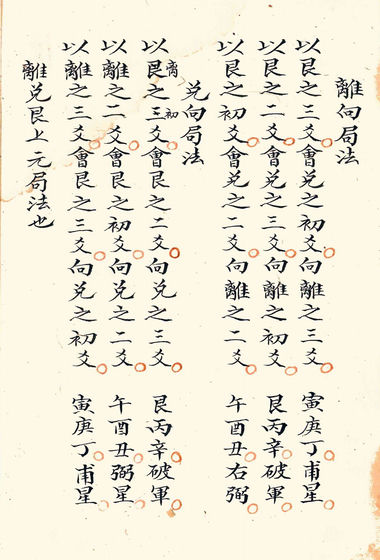 離向局法
以艮之三爻會兌之初爻向離之三爻 寅庚丁甫星
以艮之二爻會兌之三爻向離之初爻 艮丙辛破軍
以艮之初爻會兌之二爻向離之二爻 午酉丑右弼
兌向局法
以艮离之三初爻會艮之二爻向兌之三爻 艮丙辛破軍
以離之二爻會艮之初爻向兌之二爻 午酉丑弼星
以離之三爻會艮之三爻向兌之初爻 寅庚丁甫星
離兌艮上元局法也